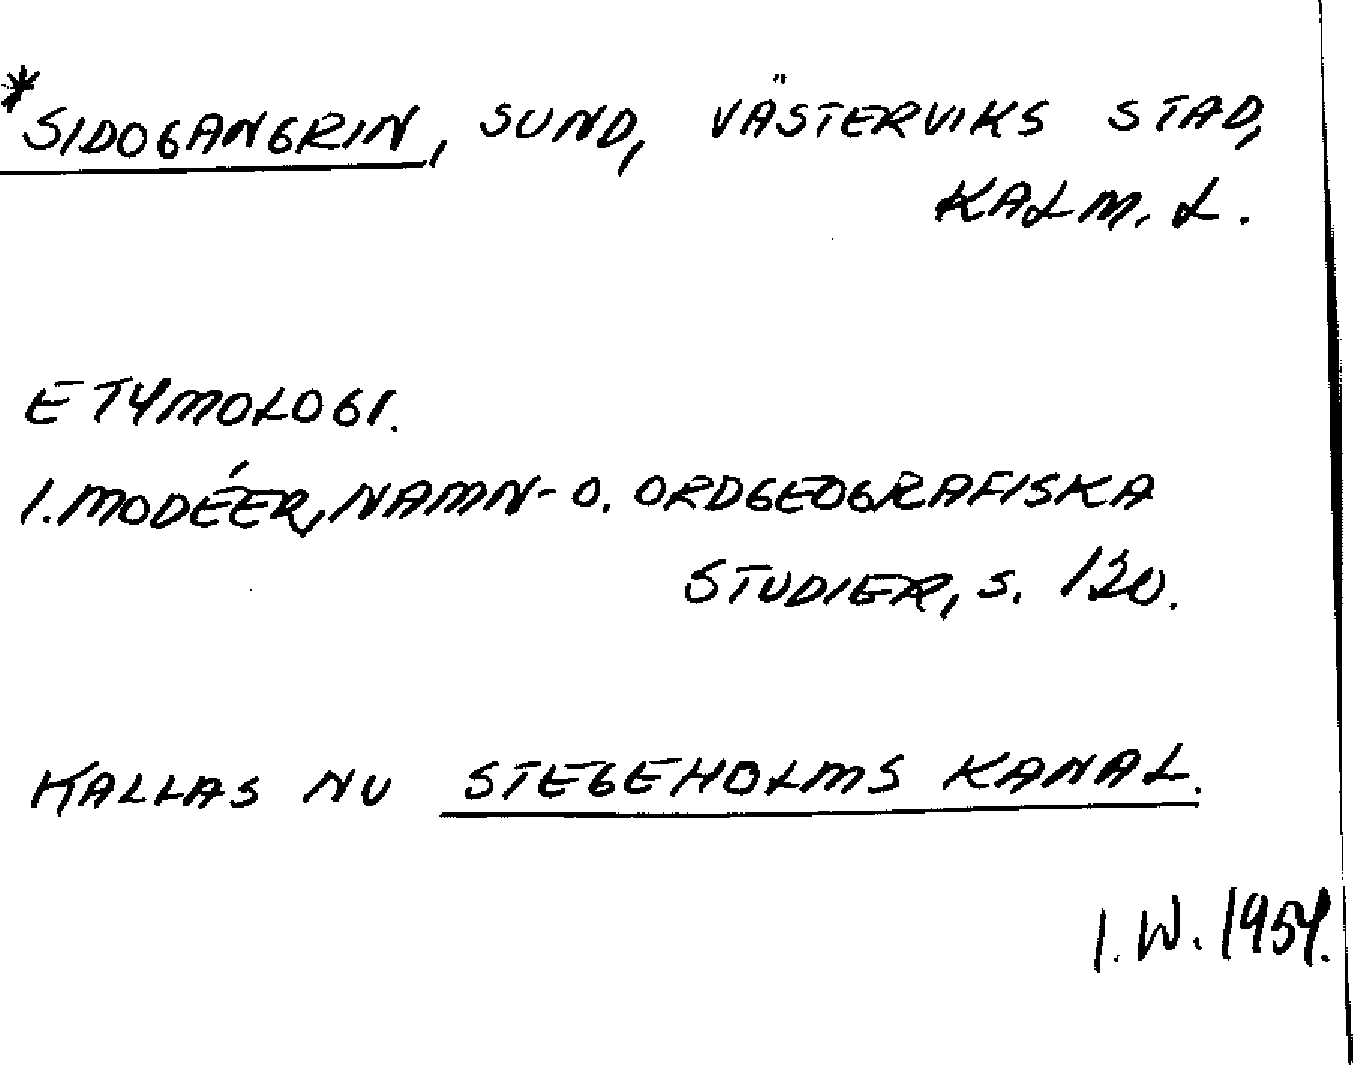 *SIDOGANGRIN, SUND, VÄSTERVIKS STAD,
KALM. L.
ETYMOLOGI.
I. MODÉER, NAMN- O. ORDGEOGRAFISKA
STUDIER, S. 130.
KALLAS NU STEGEHOLMS KANAL.
I. W. 1954.